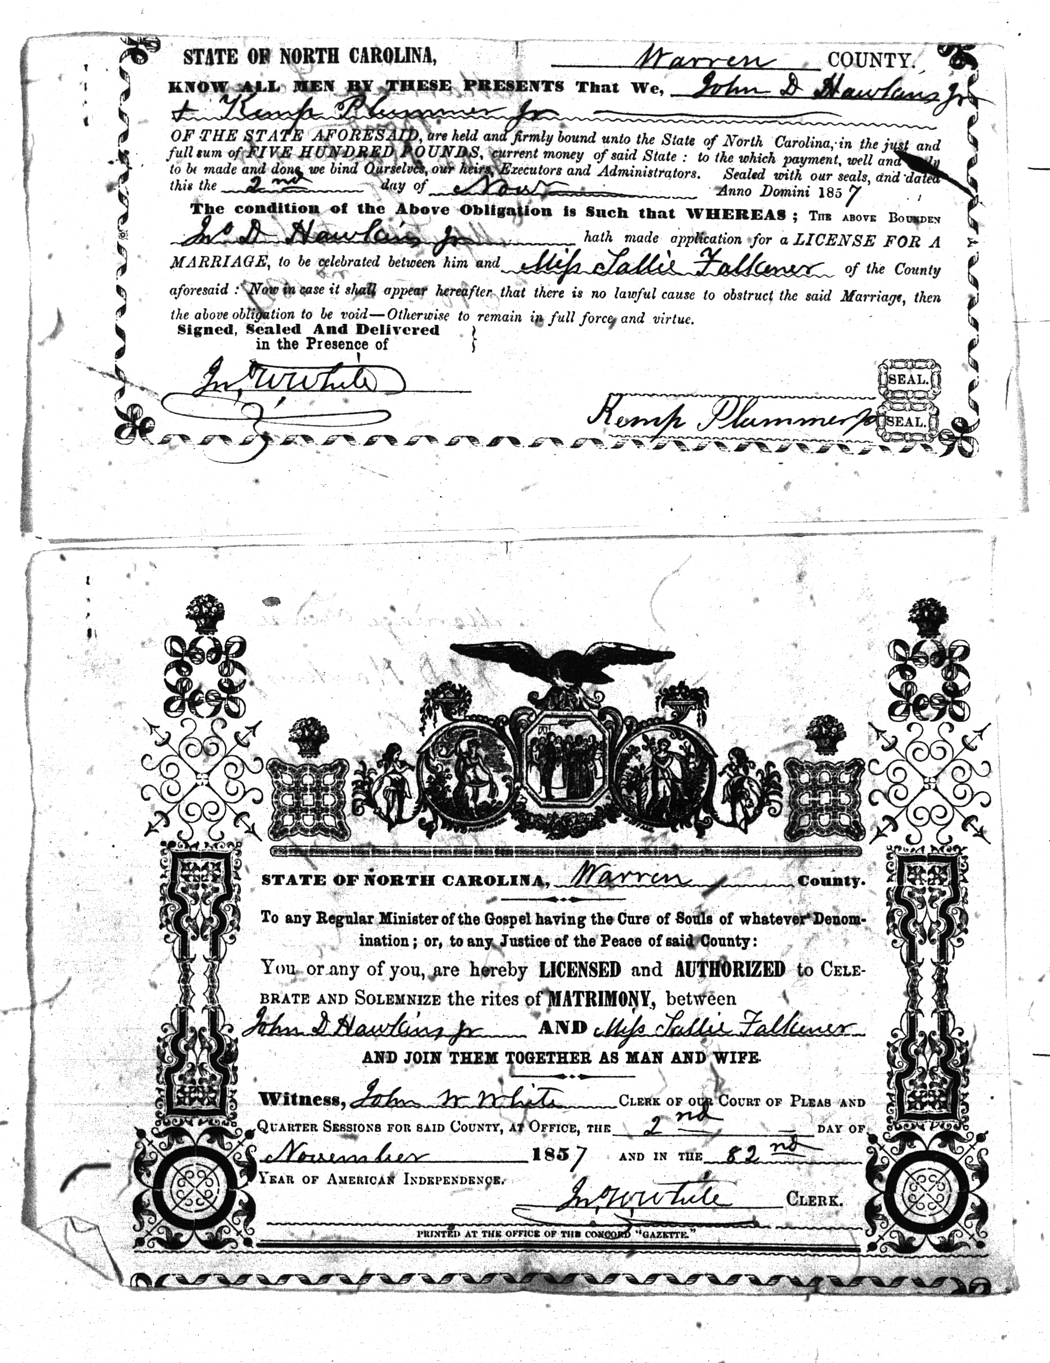 STATE OF NORTH CAROLINA, Warren COUNTY.
KNOW ALL MEN BY THESE PRESENTS That We, John D Hawkins Jr
+ Kemp Plummer Jr
OF THE STATE AFORESAID, are held and firmly bound unto the State of North Carolina, in the just and
full sum of FIVE HUNDRED POUNDS, current money of said State: to the which payment, well and
to be made and done we bind Ourselves, our heirs, Executors and Administrators. Sealed with our seals, and dated
this the 2nd day of Novr Anno Domini 1857
The condition of the Above Obligation is Such that WHEREAS; THE ABOVE BOUNDEN
Jno D Hawkins Jr hath made application for a LICENSE FOR A
MARRIAGE, to be celebrated between him and Miss Sallie Falkener of the County
aforesaid: Now in case it shall appear hereafter that there is no lawful cause to obstruct the said Marriage, then
the above obligation to be void—Otherwise to remain in full force and virtue.
Signed, Sealed And Delivered
in the Presence of
Jno W White
SEAL.
Kemp Plummer Jr SEAL.
STATE OF NORTH CAROLINA, Warren County.
To any Regular Minister of the Gospel having the Cure of Souls of whatever Denom-
ination; or, to any Justice of the Peace of said County:
You or any of you, are hereby LICENSED and AUTHORIZED to CELE-
BRATE AND SOLEMNIZE the rites of MATRIMONY, between
John D Hawkins Jr AND Miss Sallie Falkener
AND JOIN THEM TOGETHER AS MAN AND WIFE.
Witness, John W White CLERK OF OUR COURT OF PLEAS AND
QUARTER SESSIONS FOR SAID COUNTY, AT OFFICE, THE 2nd DAY OF
November 1857 AND IN THE 82nd
YEAR OF AMERICAN INDEPENDENCE.
Jno W White CLERK.
PRINTED AT THE OFFICE OF THE CONCORD "GAZETTE."